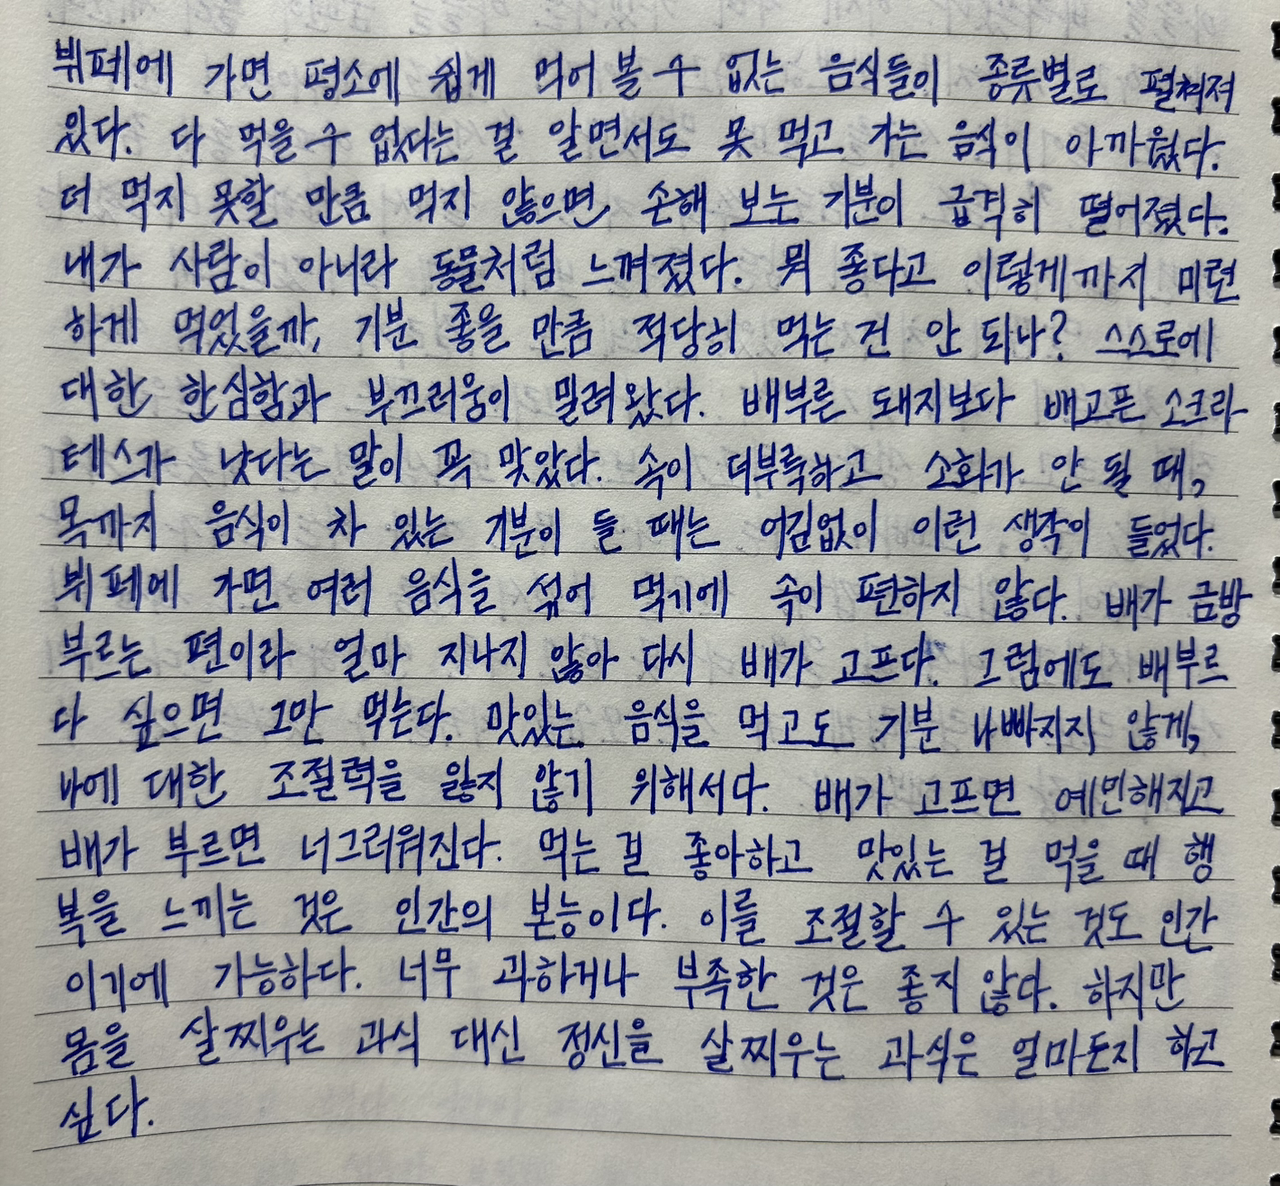 뷔페에 가면 평소에 쉽게 먹어 볼 수 없는 음식들이 종류별로 펼쳐져
있다. 다 먹을 수 없다는 걸 알면서도 못 먹고 가는 음식이 아까웠다.
더 먹지 못할 만큼 먹지 않으면 손해 보는 기분이 급격히 떨어졌다.
내가 사람이 아니라 동물처럼 느껴졌다. 뭐 좋다고 이렇게까지 미련
하게 먹었을까, 기분 좋을 만큼 적당히 먹는 건 안 되나? 스스로에
대한 한심함과 부끄러움이 밀려왔다. 배부른 돼지보다 배고픈 소크라
테스가 낫다는 말이 꼭 맞았다. 속이 더부룩하고 소화가 안 될 때,
목까지 음식이 차 있는 기분이 들 때는 어김없이 이런 생각이 들었다.
뷔페에 가면 여러 음식을 섞어 먹기에 속이 편하지 않다. 배가 금방
부르는 편이라 얼마 지나지 않아 다시 배가 고프다. 그럼에도 배부르
다 싶으면 그만 먹는다. 맛있는 음식을 먹고도 기분 나빠지지 않게,
나에 대한 조절력을 잃지 않기 위해서다. 배가 고프면 예민해지고
배가 부르면 너그러워진다. 먹는 걸 좋아하고 맛있는 걸 먹을 때 행
복을 느끼는 것은 인간의 본능이다. 이를 조절할 수 있는 것도 인간
이기에 가능하다. 너무 과하거나 부족한 것은 좋지 않다. 하지만
몸을 살찌우는 과식 대신 정신을 살찌우는 과식은 얼마든지 하고
싶다.